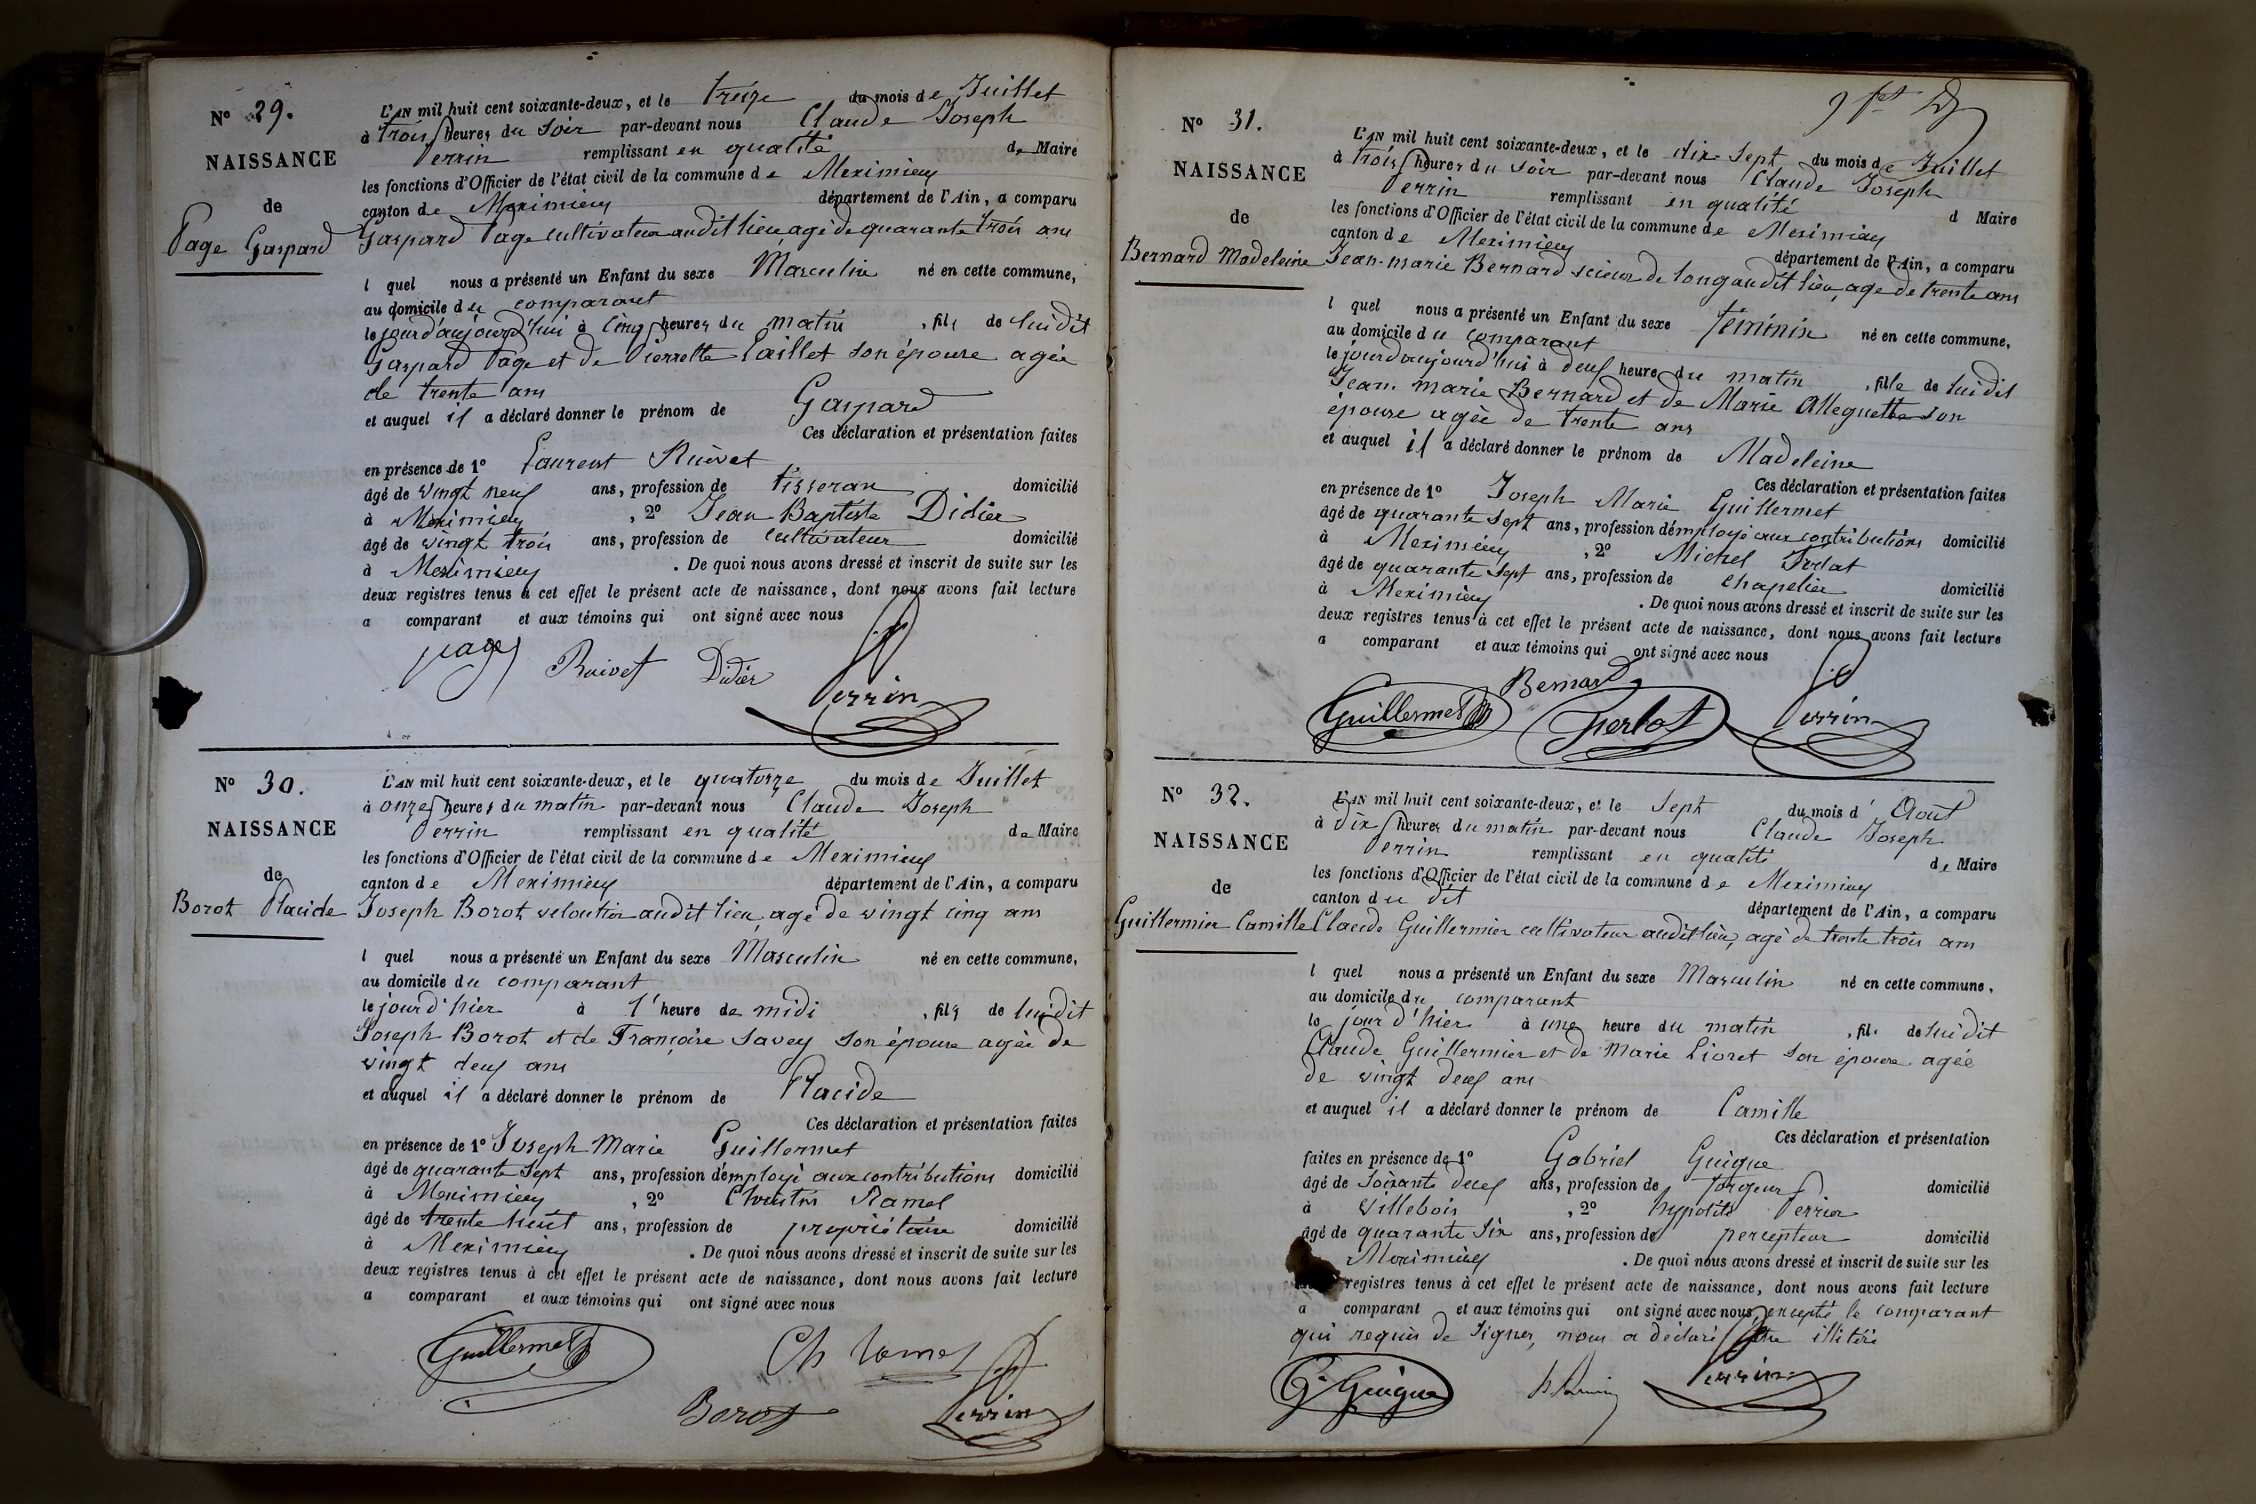 N° 29.
NAISSANCE
de
Page Gaspard
L'AN mil huit cent soixante-deux, et le treize du mois de Juillet
à trois heures du soir par-devant nous Claude Joseph
Perrin remplissant en qualité de Maire
les fonctions d'Officier de l'état civil de la commune de Meximieux
canton de Meximieux département de l'Ain, a comparu
Gaspard Page cultivateur audit lieu agé de quarante trois ans
l quel nous a présenté un Enfant du sexe Masculin né en cette commune,
au domicile du comparant
le jourd'aujourd'hui à cinq heures du matin , fils de lui dit
Gaspard Page et de Pierrette Paillet son épouse agée
de trente ans
et auquel il a déclaré donner le prénom de Gaspard
Ces déclaration et présentation faites
en présence de 1° Laurent Ruivet
âgé de vingt neuf ans, profession de tisseran domicilié
à Meximieux , 2° Jean Baptiste Didier
âgé de vingt trois ans, profession de cultivateur domicilié
à Meximieux . De quoi nous avons dressé et inscrit de suite sur les
deux registres tenus à cet effet le présent acte de naissance, dont nous avons fait lecture
a comparant et aux témoins qui ont signé avec nous
page Ruivet Didier
Perrin
N° 30.
NAISSANCE
de
Borot Placide
L'AN mil huit cent soixante-deux, et le quatorze du mois de Juillet
à onze heures du matin par-devant nous Claude Joseph
Perrin remplissant en qualité de Maire
les fonctions d'Officier de l'état civil de la commune de Meximieux
canton de Meximieux département de l'Ain, a comparu
Joseph Borot veloutier audit lieu, agé de vingt cinq ans
l quel nous a présenté un Enfant du sexe Masculin né en cette commune,
au domicile du comparant
le jour d'hier à l'heure de midi , fils de lui dit
Joseph Borot et de Françoise Savey son épouse agée de
vingt deux ans
et auquel il a déclaré donner le prénom de Placide
Ces déclaration et présentation faites
en présence de 1° Joseph Marie Guillermet
âgé de quarante sept ans, profession d'employé aux contributions domicilié
à Meximieux , 2° Ramel
âgé de trente huit ans, profession de propriétaire domicilié
à Meximieux . De quoi nous avons dressé et inscrit de suite sur les
deux registres tenus à cet effet le présent acte de naissance, dont nous avons fait lecture
a comparant et aux témoins qui ont signé avec nous
Guillermet Ch Ramel
Borot Perrin
N° 31.
NAISSANCE
de
Bernard Madeleine
L'AN mil huit cent soixante-deux, et le dix sept du mois de Juillet
à trois heures du soir par-devant nous Claude Joseph
Perrin remplissant en qualité d Maire
les fonctions d'Officier de l'état civil de la commune de Meximieux
canton de Meximieux département de l'Ain, a comparu
Jean-marie Bernard scieur de long audit lieu, agé de trente ans
l quel nous a présenté un Enfant du sexe féminin né en cette commune,
au domicile du comparant
le jourdaujourd'hui à deux heure du matin , fille de lui dit
Jean marie Bernard et de Marie Alleguette son
épouse agée de trente ans
et auquel il a déclaré donner le prénom de Madeleine
Ces déclaration et présentation faites
en présence de 1° Joseph Marie Guillermet
âgé de quarante sept ans, profession d'employé aux contributions domicilié
à Meximieux , 2° Michel
âgé de quarante sept ans, profession de chapelier domicilié
à Meximieux . De quoi nous avons dressé et inscrit de suite sur les
deux registres tenus à cet effet le présent acte de naissance, dont nous avons fait lecture
a comparant et aux témoins qui ont signé avec nous
Bernard
Guillermet Perrin
N° 32.
NAISSANCE
de
Guillermier Camille
L'AN mil huit cent soixante-deux, et le sept du mois d'Août
à dix heures du matin par-devant nous Claude Joseph
Perrin remplissant en qualité de Maire
les fonctions d'Officier de l'état civil de la commune de Meximieux
canton du dit département de l'Ain, a comparu
Claude Guillermier cultivateur audit lieu, agé de trente trois ans
l quel nous a présenté un Enfant du sexe Masculin né en cette commune,
au domicile du comparant
le jour d'hier à une heure du matin , fils de lui dit
Claude Guillermier et de Marie Lioret son épouse agée
de vingt deux ans
et auquel il a déclaré donner le prénom de Camille
Ces déclaration et présentation
faites en présence de 1° Gabriel Guigue
âgé de soixante deux ans, profession de forgeur domicilié
à Villebois , 2° hypolite Perrier
âgé de quarante six ans, profession de percepteur domicilié
Meximieux . De quoi nous avons dressé et inscrit de suite sur les
registres tenus à cet effet le présent acte de naissance, dont nous avons fait lecture
a comparant et aux témoins qui ont signé avec nous, excepté le comparant
qui requis de signer, nous a déclaré être illitéré
G. Guigue Perrin